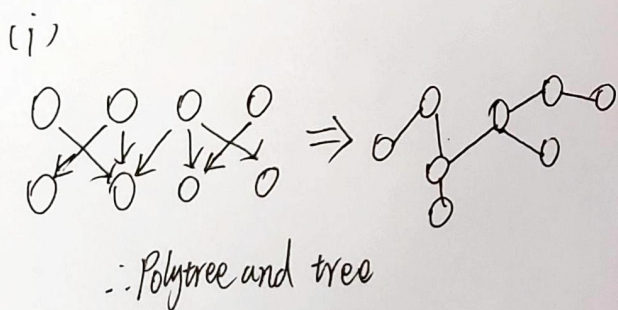 (j)
⇒
∴ Polytree and tree